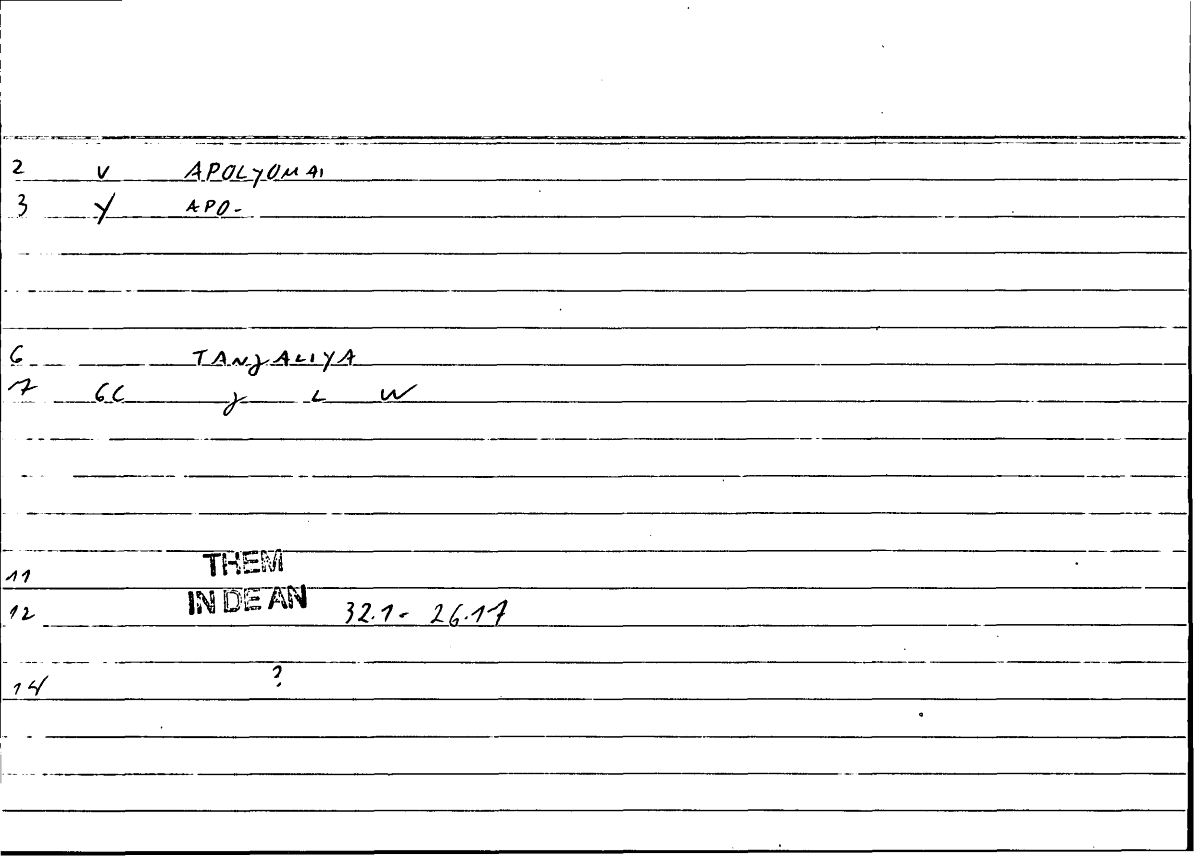 2 V APOLYOMAI
3 Y APO-
6 TANJALIYA
7 GC J L W
11 THEM
12 IN DE AN 32.1- 26.17
14 ?